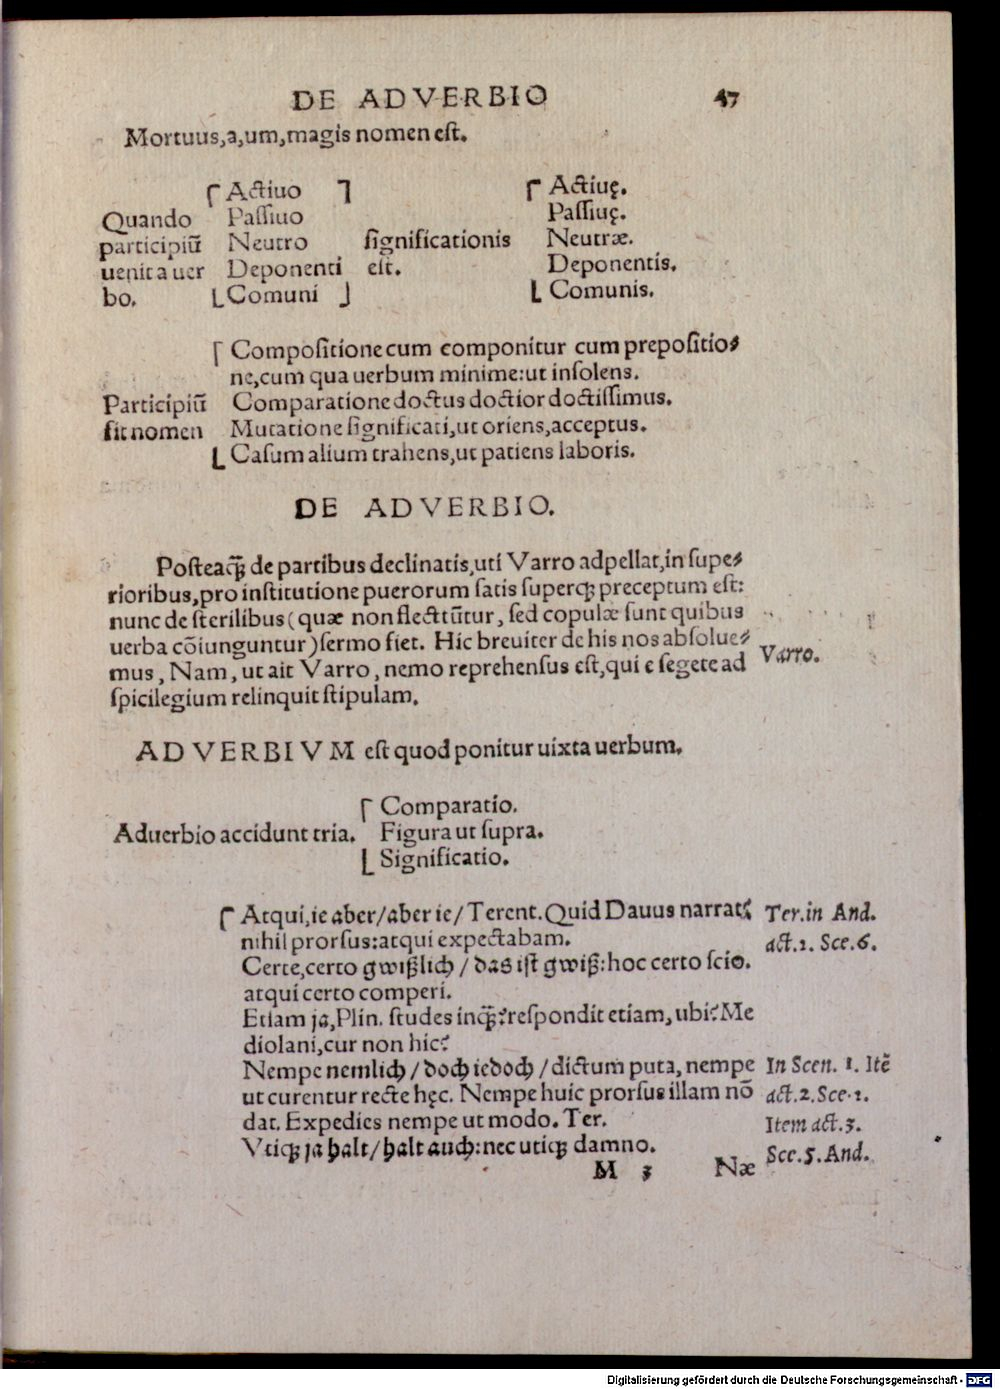 DE ADVERBIO 47
Mortuus,a,um,magis nomen est.
Actiuo Actiuę.
Quando Passiuo Passiuę.
participiū Neutro significationis Neutræ.
uenit a uer Deponenti est. Deponentis.
bo. Comuni Comunis.
Compositione cum componitur cum prepositio⸗
ne,cum qua uerbum minime:ut insolens.
Participiū Comparatione doctus doctior doctissimus.
fit nomen Mutatione significati,ut oriens,acceptus.
Casum alium trahens,ut patiens laboris.
DE ADVERBIO.
Posteaꝗ̃ de partibus declinatis,uti Varro adpellat,in supe⸗
rioribus,pro institutione puerorum satis superqꝫ preceptum est:
nunc de sterilibus (quæ non flectūtur, sed copulæ sunt quibus
uerba cōiunguntur) sermo fiet. Hic breuiter de his nos absolue⸗
mus, Nam, ut ait Varro, nemo reprehensus est,qui e segete ad Varro.
spicilegium relinquit stipulam.
ADVERBIVM est quod ponitur uixta uerbum.
Comparatio.
Aduerbio accidunt tria. Figura ut supra.
Significatio.
Atqui,ie aber/aber ie/Terent.Quid Dauus narrat? Ter.in And.
nihil prorsus:atqui expectabam. act.2. Sce.6.
Certe,certo gwißlich / das ist gwiß:hoc certo scio.
atqui certo comperi.
Etiam ja,Plin. studes inꝗ̃?respondit etiam, ubi?Me
diolani,cur non hic?
Nempe nemlich / doch iedoch /dictum puta, nempe In Scen. 1. Itē
ut curentur recte hęc. Nempe huic prorsus illam nō act.2.Sce.2.
dat. Expedies nempe ut modo. Ter. Item act.3.
Vtiqꝫ ja halt/halt auch:nec utiqꝫ damno. Sce.5.And.
M 3 Næ
Digitalisierung gefördert durch die Deutsche Forschungsgemeinschaft - DFG